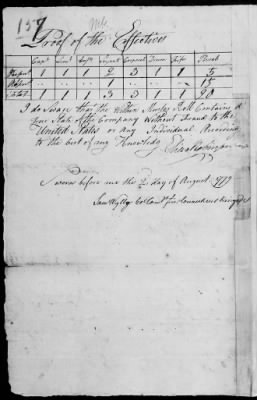 157
Proof of the Effectives
Capt Lieut Ensn Serjt Corporal Drum Fife Privat
Present 1 1 1 2 3 1 1 5
Absent 1 15
Total 1 1 1 3 3 1 1 20
I do Swear that the Within Muster Roll Contains a
True State of the Company Without Fraud to the
United States or Any Individual According
to the best of my Knowledg
Sworn before me this 2d day of August 1779
Saml Wyllys Col Comdt